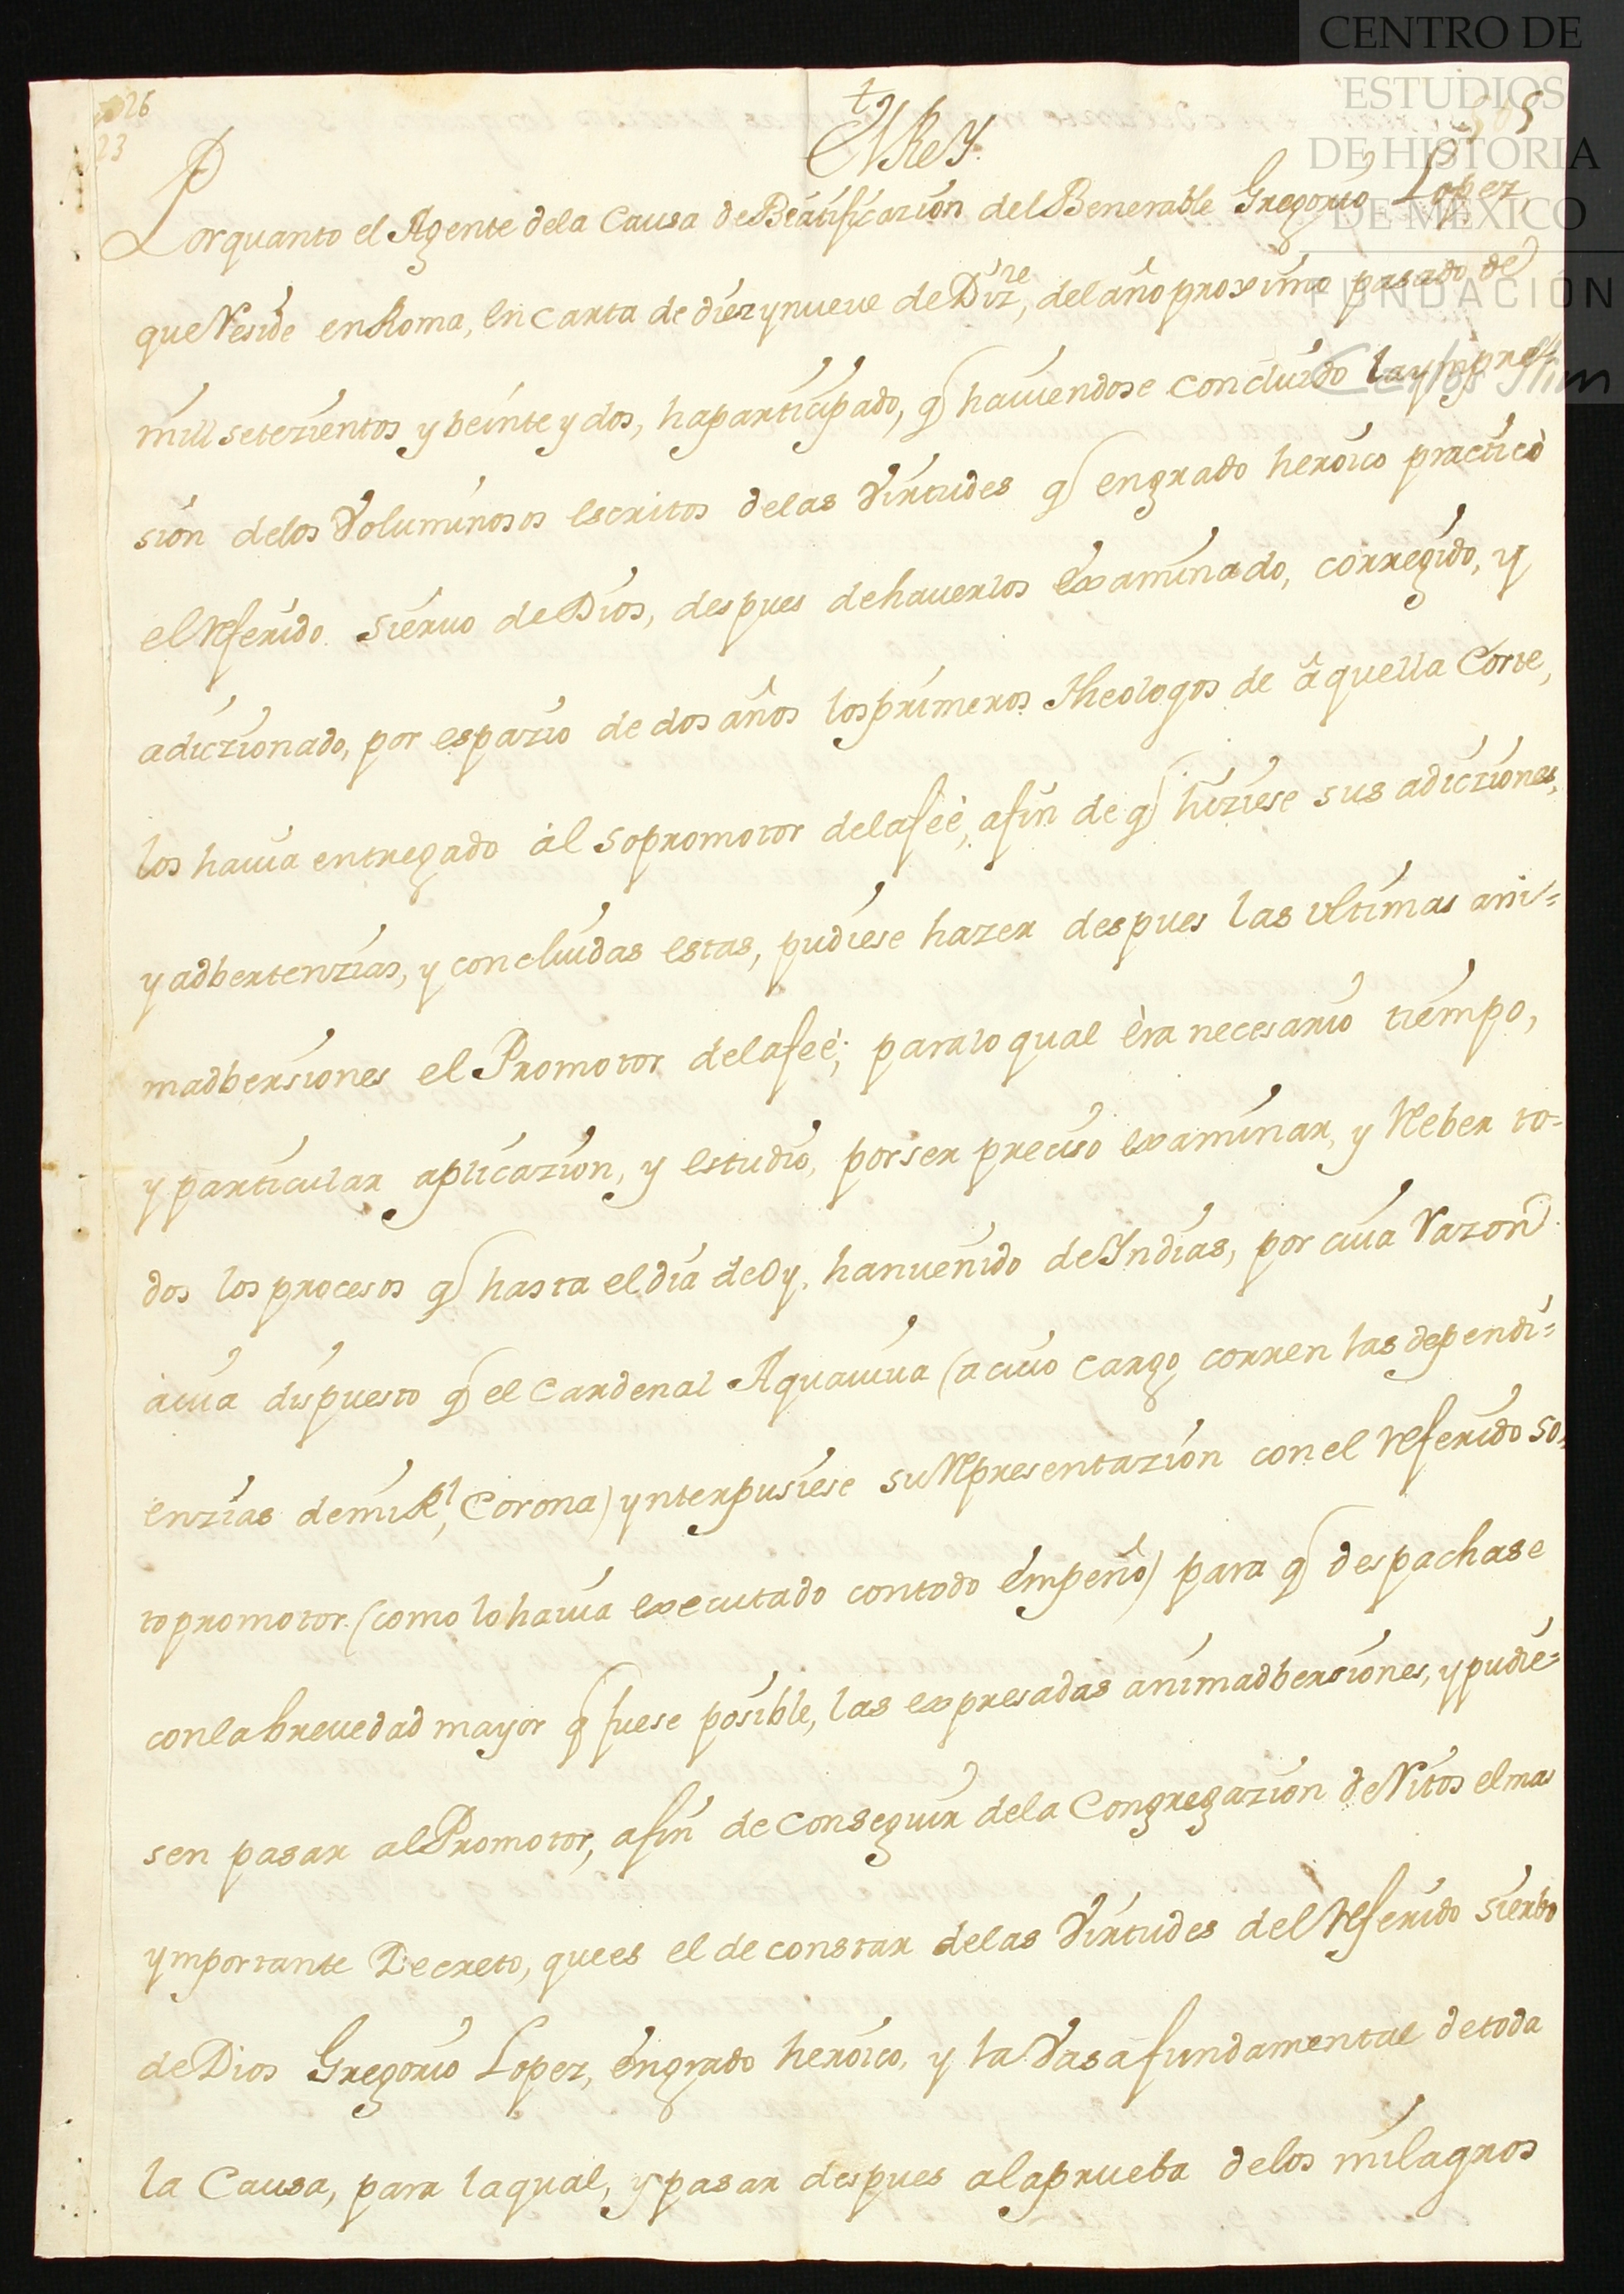 CENTRO DE
ESTUDIOS
DE HISTORIA
DE MÉXICO
FUNDACIÓN
Carlos Slim
26
23
†
El Rey.
Por quanto el Agente dela Causa de Beatificazion del Benerable Gregorio Lopez,
que Reside en Roma, en carta de diez y nueve de Diz.re, del año proximo pasado de
mill setezientos y beinte y dos, ha participado, q haviendose concluido la ympre=
sion delos Voluminosos escritos delas Virtudes q en grado heroico practicò
el Referido Siervo de Dios, despues de haverlos examinado, corregido, y
adiczionado, por espazio de dos años los primeros Theologos de aquella Corte,
los havia entregado al sopromotor dela feè, afin de q hiziese sus adicziones,
y adbertenzias, y concluidas estas, pudiese hazer despues las ultimas ani=
madbersiones el Promotor dela feè; para lo qual èra necesario tiempo,
y particular aplicazion, y estudio, por ser preciso examinar, y Reber to=
dos los procesos q hasta el dia de Oy, han venido de Yndias, por cuia Razon
avia dispuesto q el Cardenal Aquaviva (a cuio cargo corren las dependi=
enzias de mi R.l Corona) ynterpusiese su Representazion con el Referido so=
to promotor (como lo havia executado con todo empeño) para q despachase
con la brevedad mayor q fuese posible, las expresadas animadbersiones, y pudie=
sen pasar al Promotor, afin de conseguir dela Congregazion de Ritos el mas
ymportante Decreto, que es el de constar delas Virtudes del Referido Sierbo
de Dios Gregorio Lopez, en grado heroico, y la Vasa fundamental de toda
la Causa, para la qual, y pasar despues a la prueba delos milagros